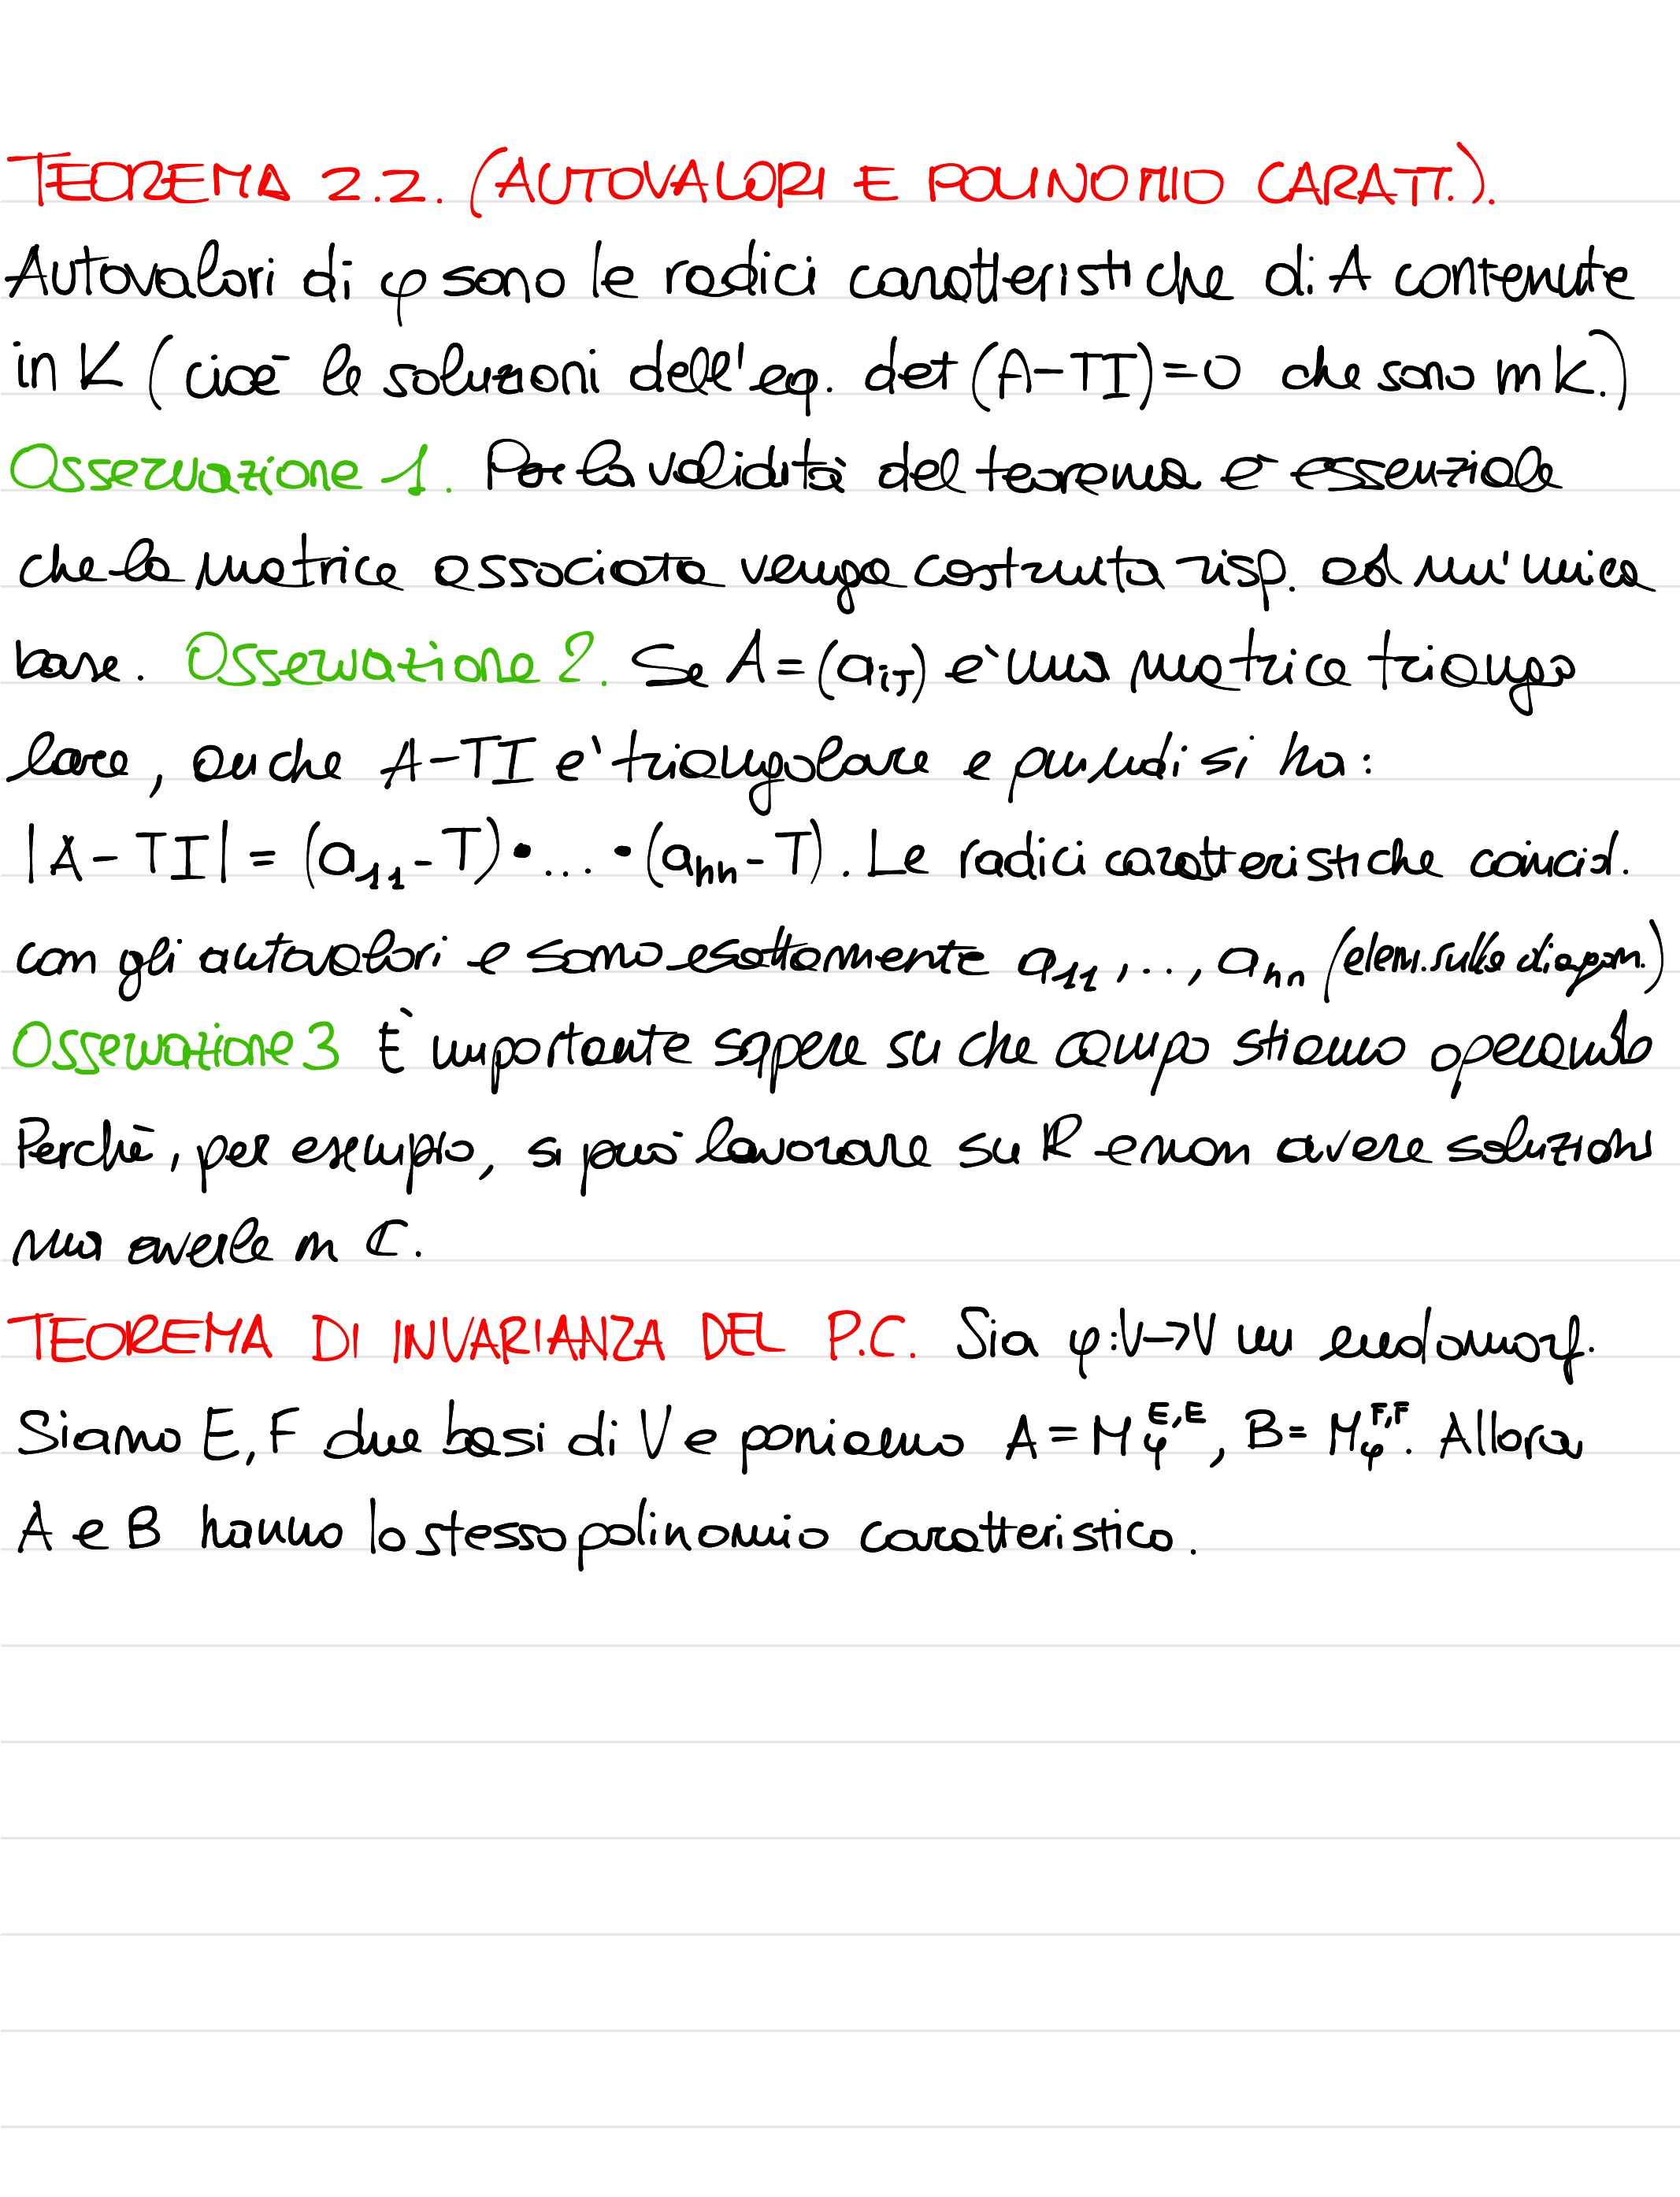 TEOREMA 2.2. (AUTOVALORI E POLINOMIO CARATT.).
Autovalori di φ sono le radici caratteristiche di A contenute
in K (cioè le soluzioni dell'eq. det (A-TI)=0 che sono in K.)
Osservazione 1. Per la validità del teorema è essenziale
che la matrice associata venga costruita risp. ad un'unica
base. Osservazione 2. Se A=(aᵢⱼ) è una matrice triango
lare, anche A-TI e' triangolare e quindi si ha:
|A-TI| = (a₁₁-T)•...•(aₙₙ-T). Le radici caratteristiche coincid.
con gli autovalori e sono esattamente a₁₁,..., aₙₙ (elem. sulla diagon.)
Osservazione 3 È importante sapere su che campo stiamo operando
Perchè, per esempio, si può lavorare su R e non avere soluzioni
ma averle in C.
TEOREMA DI INVARIANZA DEL P.C. Sia φ:V→V un endomorf.
Siano E, F due basi di V e poniamo A = M_φ^E,E, B = M_φ^F,F. Allora
A e B hanno lo stesso polinomio caratteristico.